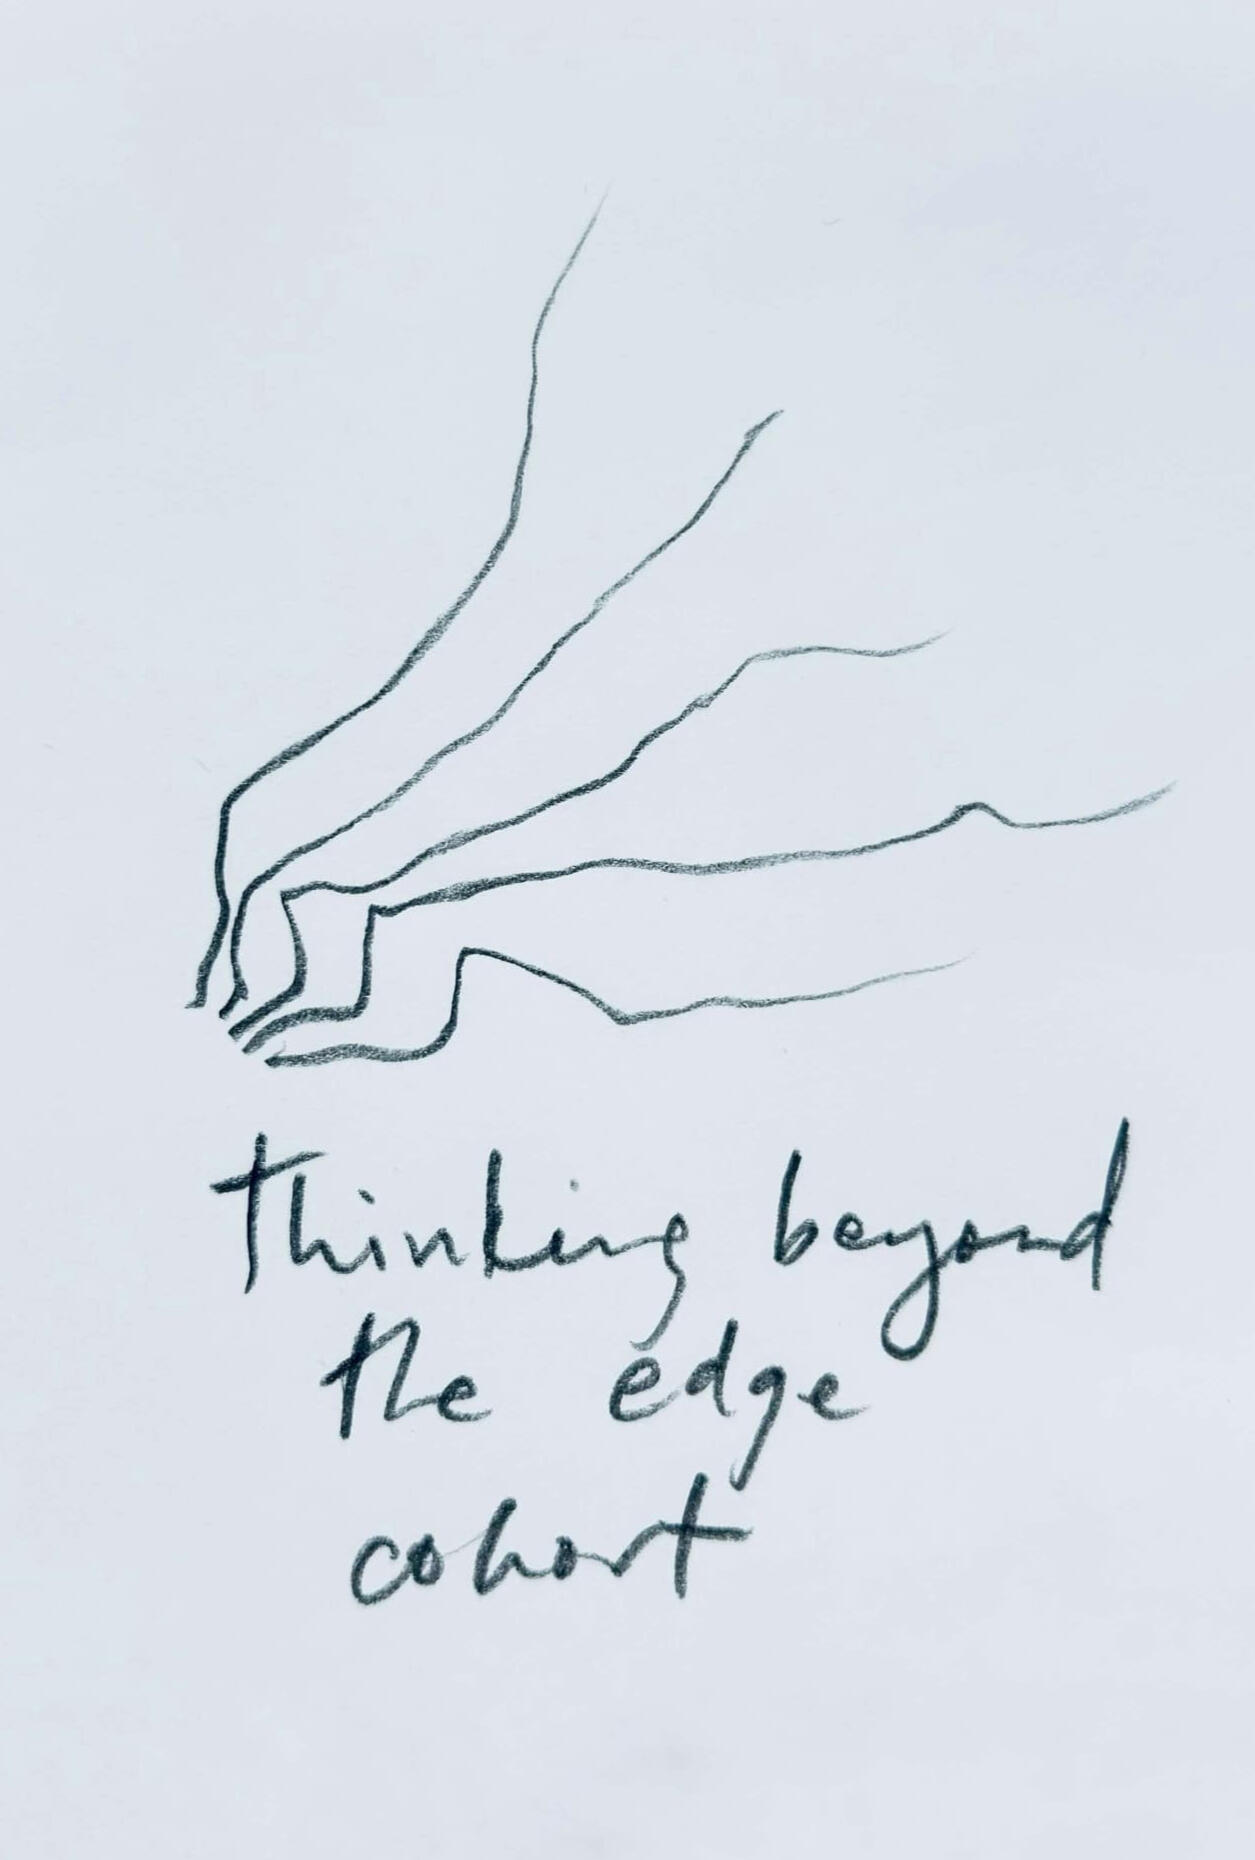 thinking beyond
the edge
cohort